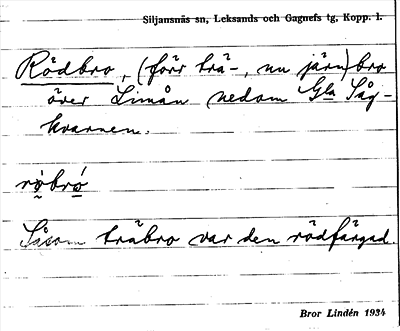 Siljansnäs sn, Leksands och Gagnefs tg, Kopp. l.
Rödbro, (förr trä-, nu järn)bro
över Limån nedom Gla Såg-
kvarnen.
röbró
Såsom träbro var den rödfärgad.
Bror Lindén 1934